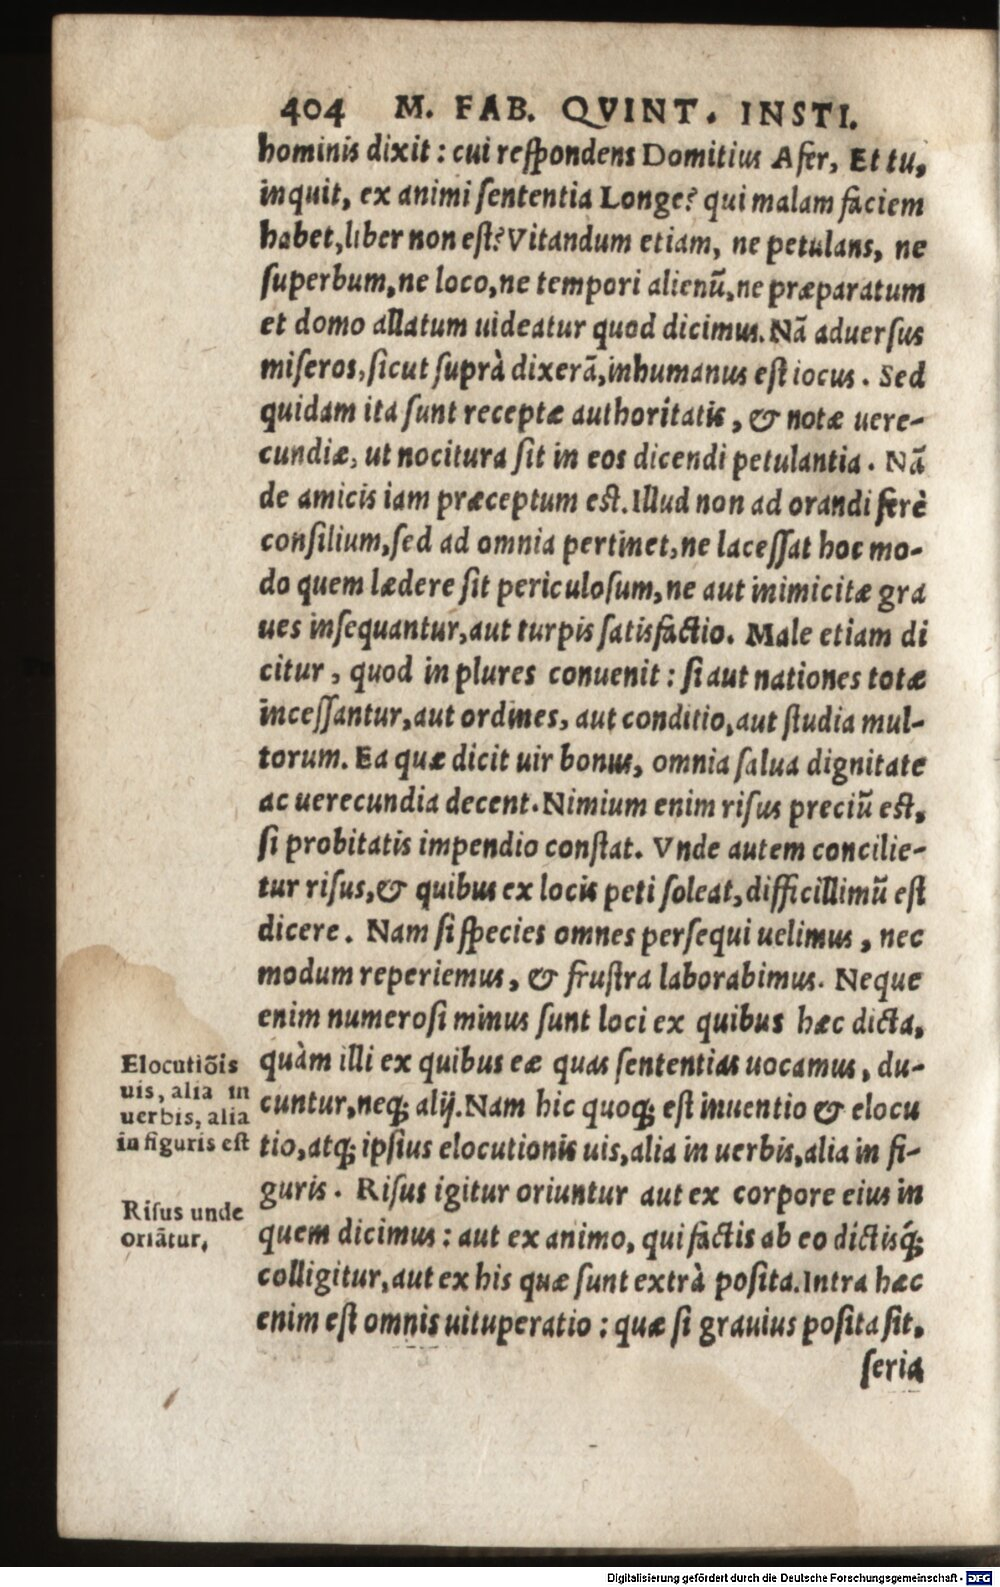 404 M. FAB. QVINT. INSTI.
hominis dixit: cui reſpondens Domitius Afer, Et tu,
inquit, ex animi ſententia Longe? qui malam faciem
habet, liber non eſt? Vitandum etiam, ne petulans, ne
ſuperbum, ne loco, ne tempori alienū, ne præparatum
et domo allatum uideatur quod dicimus. Nã aduerſus
miſeros, ſicut ſuprà dixerã, inhumanus eſt iocus. Sed
quidam ita ſunt receptæ authoritatis, & notæ uere-
cundiæ, ut nocitura ſit in eos dicendi petulantia. Nã
de amicis iam præceptum eſt. Illud non ad orandi ferè
conſilium, ſed ad omnia pertinet, ne laceſſat hoc mo-
do quem lædere ſit periculoſum, ne aut inimicitæ gra
ues inſequantur, aut turpis ſatisfactio. Male etiam di
citur, quod in plures conuenit: ſi aut nationes totæ
inceſſantur, aut ordines, aut conditio, aut ſtudia mul-
torum. Ea quæ dicit uir bonus, omnia ſalua dignitate
ac uerecundia decent. Nimium enim riſus preciū eſt,
ſi probitatis impendio conſtat. Vnde autem concilie-
tur riſus, & quibus ex locis peti ſoleat, difficillimū eſt
dicere. Nam ſi ſpecies omnes perſequi uelimus, nec
modum reperiemus, & fruſtra laborabimus. Neque
enim numeroſi minus ſunt loci ex quibus hæc dicta,
quàm illi ex quibus eæ quas ſententias uocamus, du-
cuntur, neq; alij. Nam hic quoq; eſt inuentio & elocu
tio, atq; ipſius elocutionis uis, alia in uerbis, alia in fi-
guris. Riſus igitur oriuntur aut ex corpore eius in
quem dicimus: aut ex animo, qui factis ab eo dictisq́;
colligitur, aut ex his quæ ſunt extrà poſita. Intra hæc
enim eſt omnis uituperatio: quæ ſi grauius poſita ſit,
ſeria
Elocutiõis
uis, alia in
uerbis, alia
in figuris eſt
Riſus unde
oriãtur,
Digitalisierung gefördert durch die Deutsche Forschungsgemeinschaft - DFG